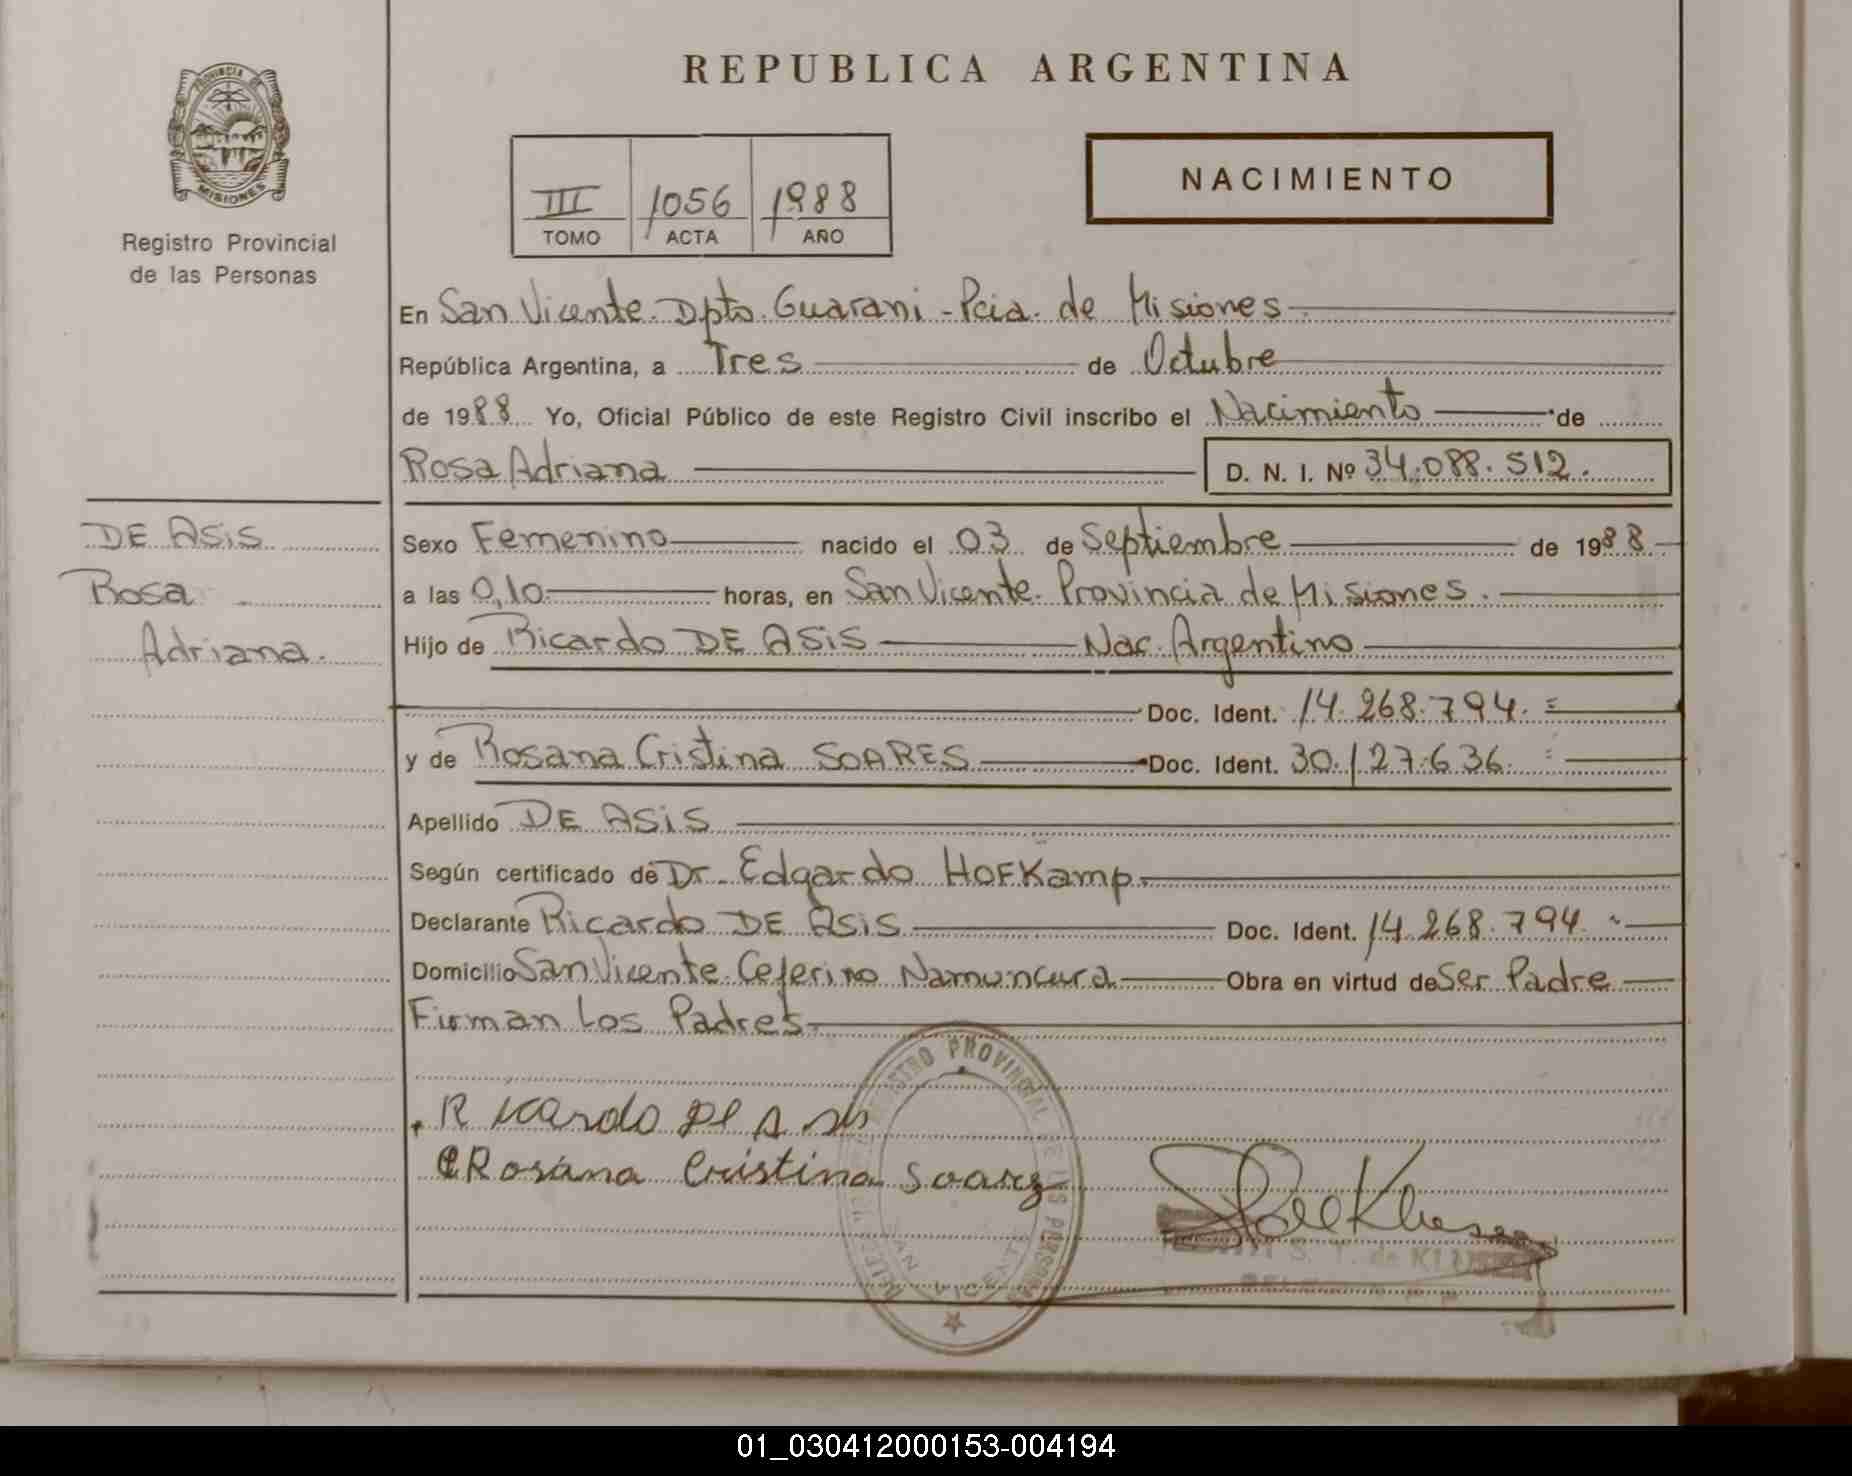 REPUBLICA ARGENTINA
PROVINCIA DE
MISIONES
Registro Provincial
de las Personas
III 1056 1988
TOMO ACTA AÑO
NACIMIENTO
En San Vicente. Dpto. Guarani - Pcia. de Misiones
República Argentina, a Tres de Octubre
de 1988. Yo, Oficial Público de este Registro Civil inscribo el Nacimiento de
Rosa Adriana D. N. I. Nº 34.088.512.
DE ASiS
Rosa
Adriana.
Sexo Femenino nacido el 03 de Septiembre de 1988.
a las 0,10 horas, en San Vicente. Provincia de Misiones.
Hijo de Ricardo DE ASiS Nac. Argentino
Doc. Ident. 14.268.794. =
y de Rosana Cristina SOARES Doc. Ident. 30.127.636.
Apellido DE ASiS
Según certificado de Dr. Edgardo HOFKamp.
Declarante Ricardo DE ASiS Doc. Ident. 14.268.794.
Domicilio San Vicente. Ceferino Namuncura Obra en virtud de Ser Padre
Firman Los Padres.
Ricardo de Asis
Rosana Cristina Soarez
REGISTRO PROVINCIAL DE LAS PERSONAS
SAN VICENTE
S. T. de
01_030412000153-004194